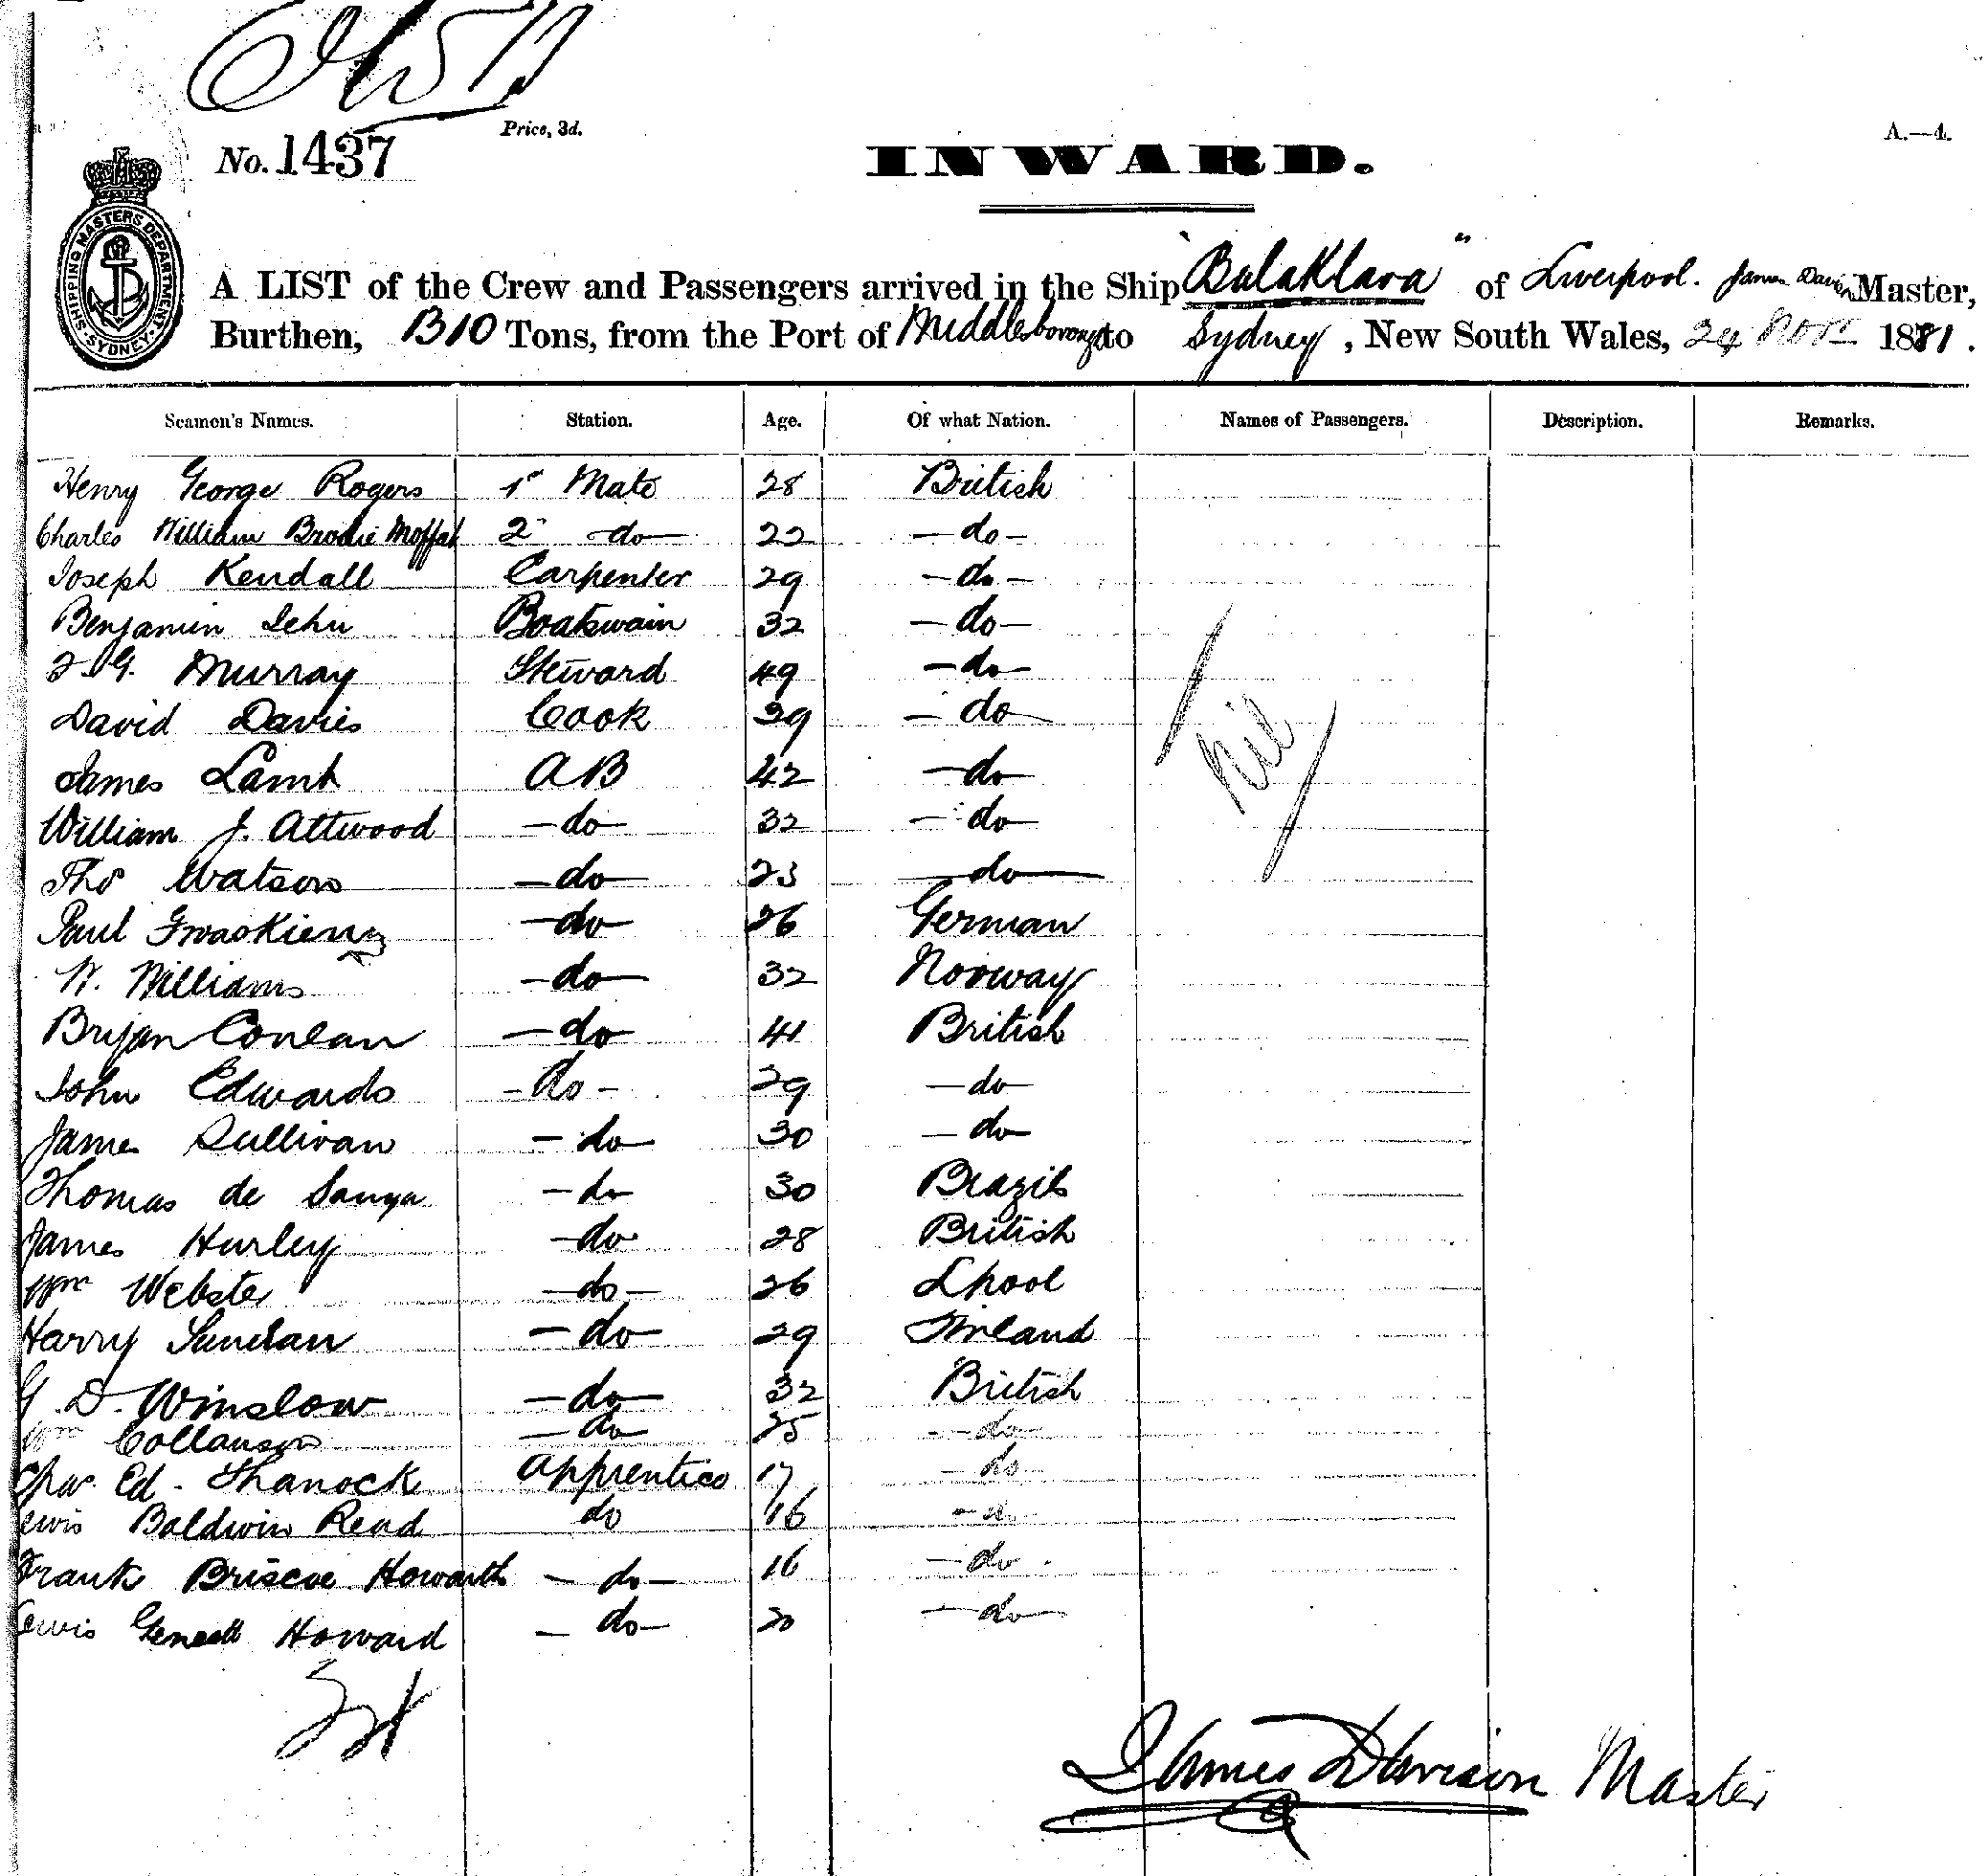 No. 1437
Price, 3d.
INWARD.
A.—4.
SHIPPING MASTERS DEPARTMENT
SYDNEY
A LIST of the Crew and Passengers arrived in the Ship "Balaklava" of Liverpool. James Davison Master,
Burthen, 1310 Tons, from the Port of Middlesborough to Sydney, New South Wales, 24 Novr 1881.
Seamen's Names. Station. Age. Of what Nation. Names of Passengers. Description. Remarks.
Henry George Rogers 1st Mate 28 British
Charles William Brodie Moffat 2 do 22 - do -
Joseph Kendall Carpenter 29 - do -
Benjamin Boatswain 32 - do -
Murray Steward 49 - do
David Davies Cook 39 - do
James Lamb AB 42 - do
Nil
William J. Attwood - do 32 - do
Thos Watson - do 23 - do
Paul - do 26 German
W. Williams - do 32 Norway
Bryan Conlan - do 41 British
John Edwards - do - 29 - do
James Sullivan - do 30 - do
Thomas de - do 30 Brazils
James Hurley - do 28 British
Wm Webster - do - 26 Lpool
Harry - do 29 Finland
G. D. Winslow - do 32 British
Wm Collanson - do 25 - do
Chas. Ed. Apprentice 17 - do
Lewis Baldwin Read do 16 - do
Frank Briscoe Howarth - do - 16 - do
Lewis Howard - do - 20 - do
James Davison Master